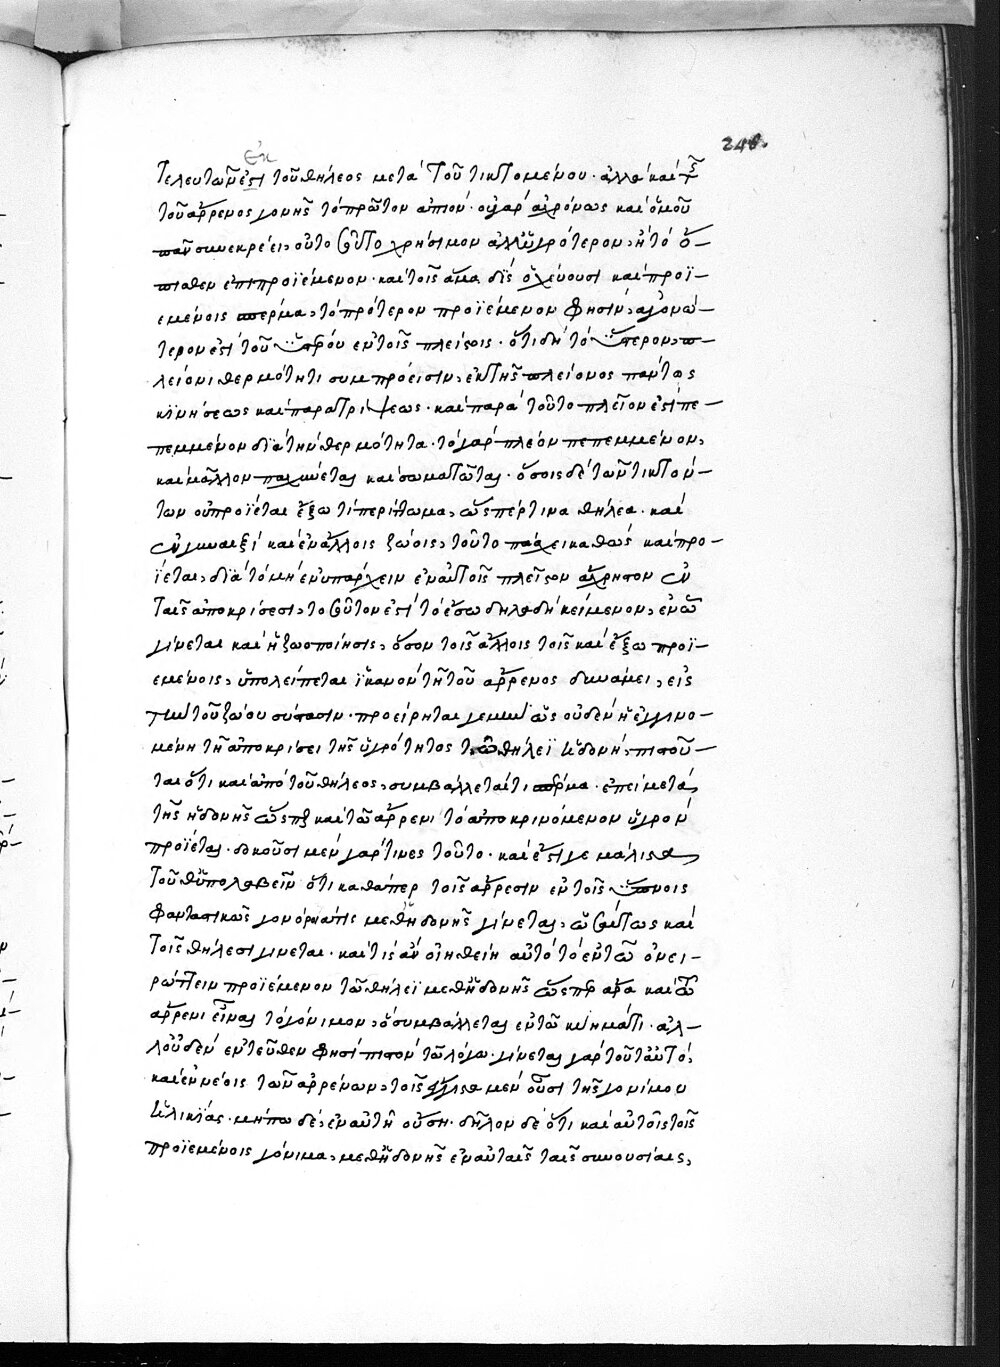 248.
ἐκ
τελευτῶν ἐστι τοῦ θήλεος μετὰ τοῦ τικτομένου· ἀλλὰ καὶ
τοῦ ἄρρενος γονῆς τὸ πρῶτον ἀπιόν· οὐ γὰρ ἀχρόνως καὶ ὁμοῦ
πᾶν συνεκρέει, οὔτε οὕτω χρήσιμον ἀλλ' ὑγρότερον, ἢ τὸ ὄ-
πισθεν ἐπιπροϊέμενον· καὶ τοῖς ἅμα δὶς ὀχεύουσι καὶ προϊ-
εμένοις σπέρμα, τὸ πρότερον προϊέμενον φησὶν, ἀγονώ-
τερον ἐστὶ τοῦ ὑστέρου ἐν τοῖς πλείστοις· ὅτι δὴ τὸ ὕστερον, π-
λείονι θερμότητι συμπρόεισιν, ἐκ τῆς πλείονος πάντως
κινήσεως καὶ παρατρίψεως· καὶ παρὰ τοῦτο πλεῖον ἐστὶ πε-
πεμμένον διὰ τὴν θερμότητα· τὸ γὰρ πλέον πεπεμμένον,
καὶ μᾶλλον παχύνεται καὶ σωματῶται· ὅσοις δὲ τῶν τικτόν-
των οὐ προΐεται ἔξω τι περίττωμα, ὥσπερ τινα θήλεα· καὶ
ἐν γυναιξὶ καὶ ἐν ἄλλοις ζώοις, τοῦτο πάσχει καθὼς καὶ προ-
ΐεται, διὰ τὸ μὴ ἐνυπάρχειν ἐν αὐτοῖς πλεῖστον ἄχρηστον ἐν
ταῖς ἀποκρίσεσι, τοσοῦτον ἐστὶ τὸ ἔσω δηλαδὴ κείμενον, ἐν ᾧ
γίνεται καὶ ἡ ζωοποίησις, ὅσον τοῖς ἄλλοις τοῖς καὶ ἔξω προϊ-
εμένοις, ὑπολείπεται ἱκανὸν τῇ τοῦ ἄρρενος δυνάμει, εἰς
τὴν τοῦ ζώου σύστασιν· προείρηται γε μὴν ὡς οὐδὲν ἡ ἐγγινο-
μένη τῇ ἀποκρίσει τῆς ὑγρότητος τῷ θήλεϊ ἡδονὴ, πιστοῦ-
ται ὅτι καὶ ἀπὸ τοῦ θήλεος, συμβάλλεταί τι σπέρμα· ἐπεὶ μετὰ
τῆς ἡδονῆς ὥσπερ καὶ τῷ ἄρρενι τὸ ἀποκρινόμενον ὑγρὸν
προΐεται· δοκοῦσι μὲν γάρ τινες τοῦτο· καὶ ἔστι γε μάλιστα
τοῦθ' ὑπολαβεῖν ὅτι καθάπερ τοῖς ἄρρεσιν ἐν τοῖς ὕπνοις
φανταστικῶς γονόρροια τις μεθ' ἡδονῆς γίνεται, οὕτως καὶ
τοῖς θήλεσι γίνεται· καὶ τίς ἂν οἰηθείη αὐτὸ τὸ ἐν τῷ ὀνει-
ρώττειν προϊέμενον τῷ θήλεϊ μεθ' ἡδονῆς ὥσπερ ἄρα καὶ τῷ
ἄρρενι εἶναι τὸ γόνιμον, ὃ συμβάλλεται ἐν τῷ κυήματι· ἀλ-
λ' οὐδὲν ἐντεῦθεν φησὶ πιστὸν τῷ λόγω· γίνεται γὰρ τοῦτ' αὐτὸ,
καὶ ἐν νέοις τῶν ἀρρένων, τοῖς μέλλουσι μὲν οὖσι τῆς γονίμου
ἡλικίας· μήπω δὲ, ἐν αὐτῇ οὖσιν· δῆλον δὲ ὅτι καὶ αὐτοῖς τοῖς
προϊεμένοις γόνιμα, μεθ' ἡδονῆς ἐν αὐταῖς ταῖς συνουσίαις,